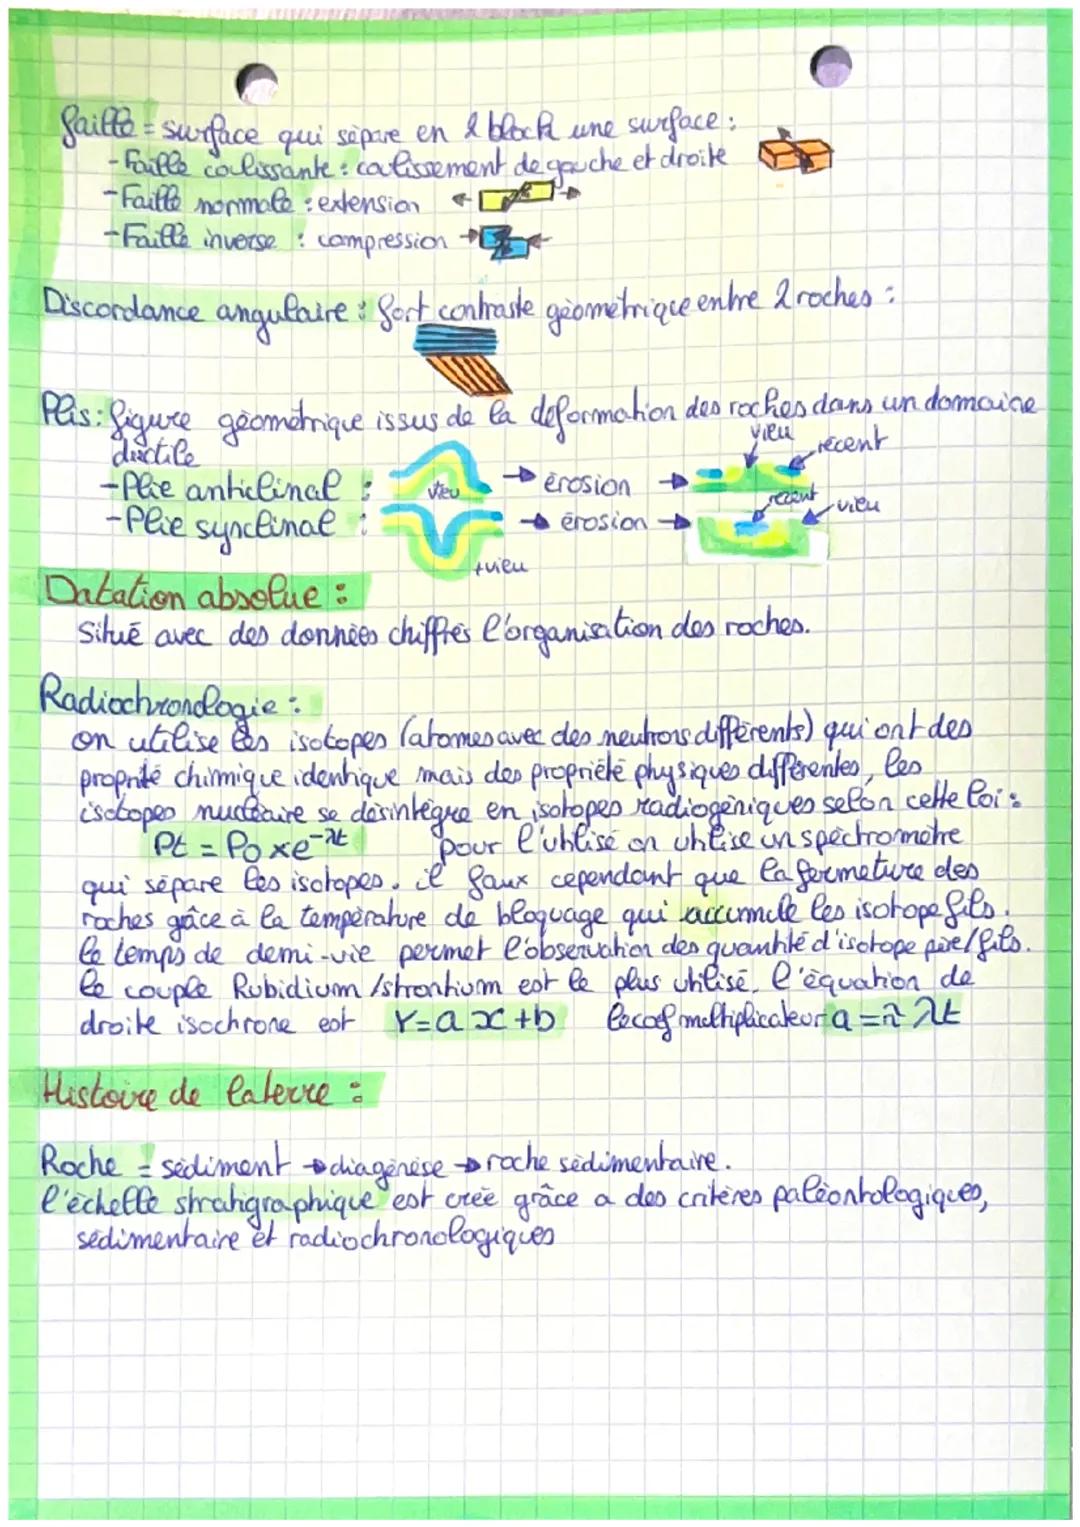 faille = surface qui sépare en 2 block une surface :
- Faille coulissante : coulissement de gauche et droite
- Faille normale : extension
- Faille inverse : compression
Discordance angulaire : fort contraste géométrique entre 2 roches :
Plis : figure géométrique issus de la déformation des roches dans un domaine
ductile
vieu récent
- Plie anticlinal : vieu → érosion →
récent vieu
- Plie synclinal : → érosion →
+vieu
Datation absolue :
Situé avec des données chiffrés l'organisation des roches.
Radiochronologie :
on utilise les isotopes (atomes avec des neutrons différents) qui ont des
proprité chimique identique mais des propriété physiques différentes, les
isotopes nucléaire se désintègre en isotopes radiogéniques selon cette loi :
Pt = P0 x e^-λt pour l'utilisé on utilise un spectromètre
qui sépare les isotopes. il faux cependant que la fermeture des
roches grâce à la température de bloquage qui accumule les isotope fils.
le temps de demi-vie permet l'observation des quantité d'isotope père/fils.
le couple Rubidium/strontium est le plus utilisé, l'équation de
droite isochrone est Y = a x + b le coef multiplicateur a = λt
Histoire de la terre :
Roche = sédiment → diagénèse → roche sédimentaire.
l'échelle stratigraphique est créé grâce a des critères paléontologiques,
sédimentaire et radiochronologiques